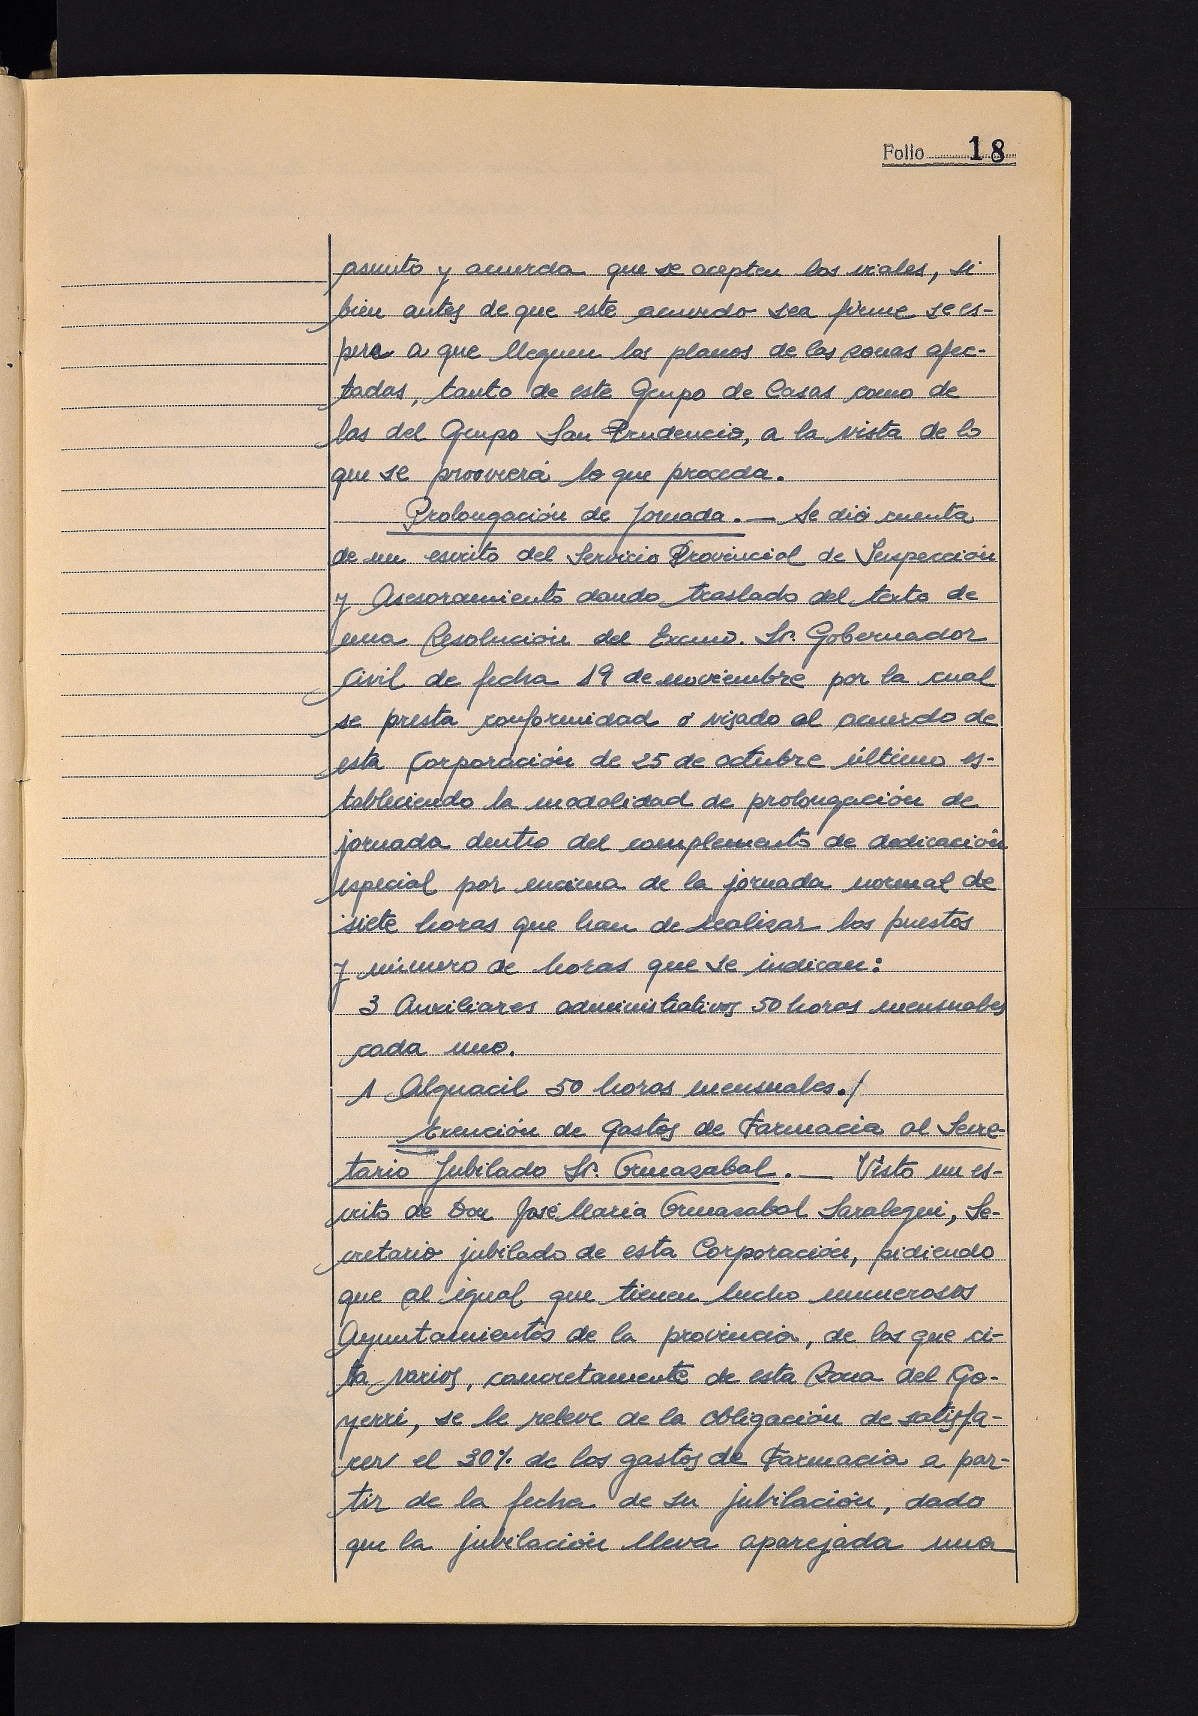 Folio 18
asunto y acuerda que se acepten los viales, si
bien antes de que este acuerdo sea firme se es-
pera a que lleguen los planos de las zonas afec-
tadas, tanto de este Grupo de Casas como de
las del Grupo San Prudencio, a la vista de lo
que se proveerá lo que proceda.
Prolongación de Jornada. — Se dió cuenta
de un escrito del Servicio Provincial de Inspección
y Asesoramiento dando traslado del texto de
una Resolución del Excmo. Sr. Gobernador
Civil de fecha 19 de noviembre por la cual
se presta conformidad o visado al acuerdo de
esta Corporación de 25 de octubre último es-
tableciendo la modalidad de prolongación de
jornada dentro del complemento de dedicación
especial por encima de la jornada normal de
siete horas que han de realizar los puestos
y número de horas que se indican:
3 Auxiliares administrativos 50 horas mensuales
cada uno.
1 Alguacil 50 horas mensuales./
Exención de gastos de Farmacia al Secre-
tario Jubilado Sr. Ormazabal. — Visto un es-
crito de Don José Maria Ormazabal Saralegui, Se-
cretario jubilado de esta Corporación, pidiendo
que al igual que tienen hecho numerosos
Ayuntamientos de la provincia, de los que ci-
ta varios, concretamente de esta Zona del Go-
yerri, se le releve de la obligación de satisfa-
cer el 30% de los gastos de Farmacia a par-
tir de la fecha de su jubilación, dado
que la jubilación lleva aparejada una